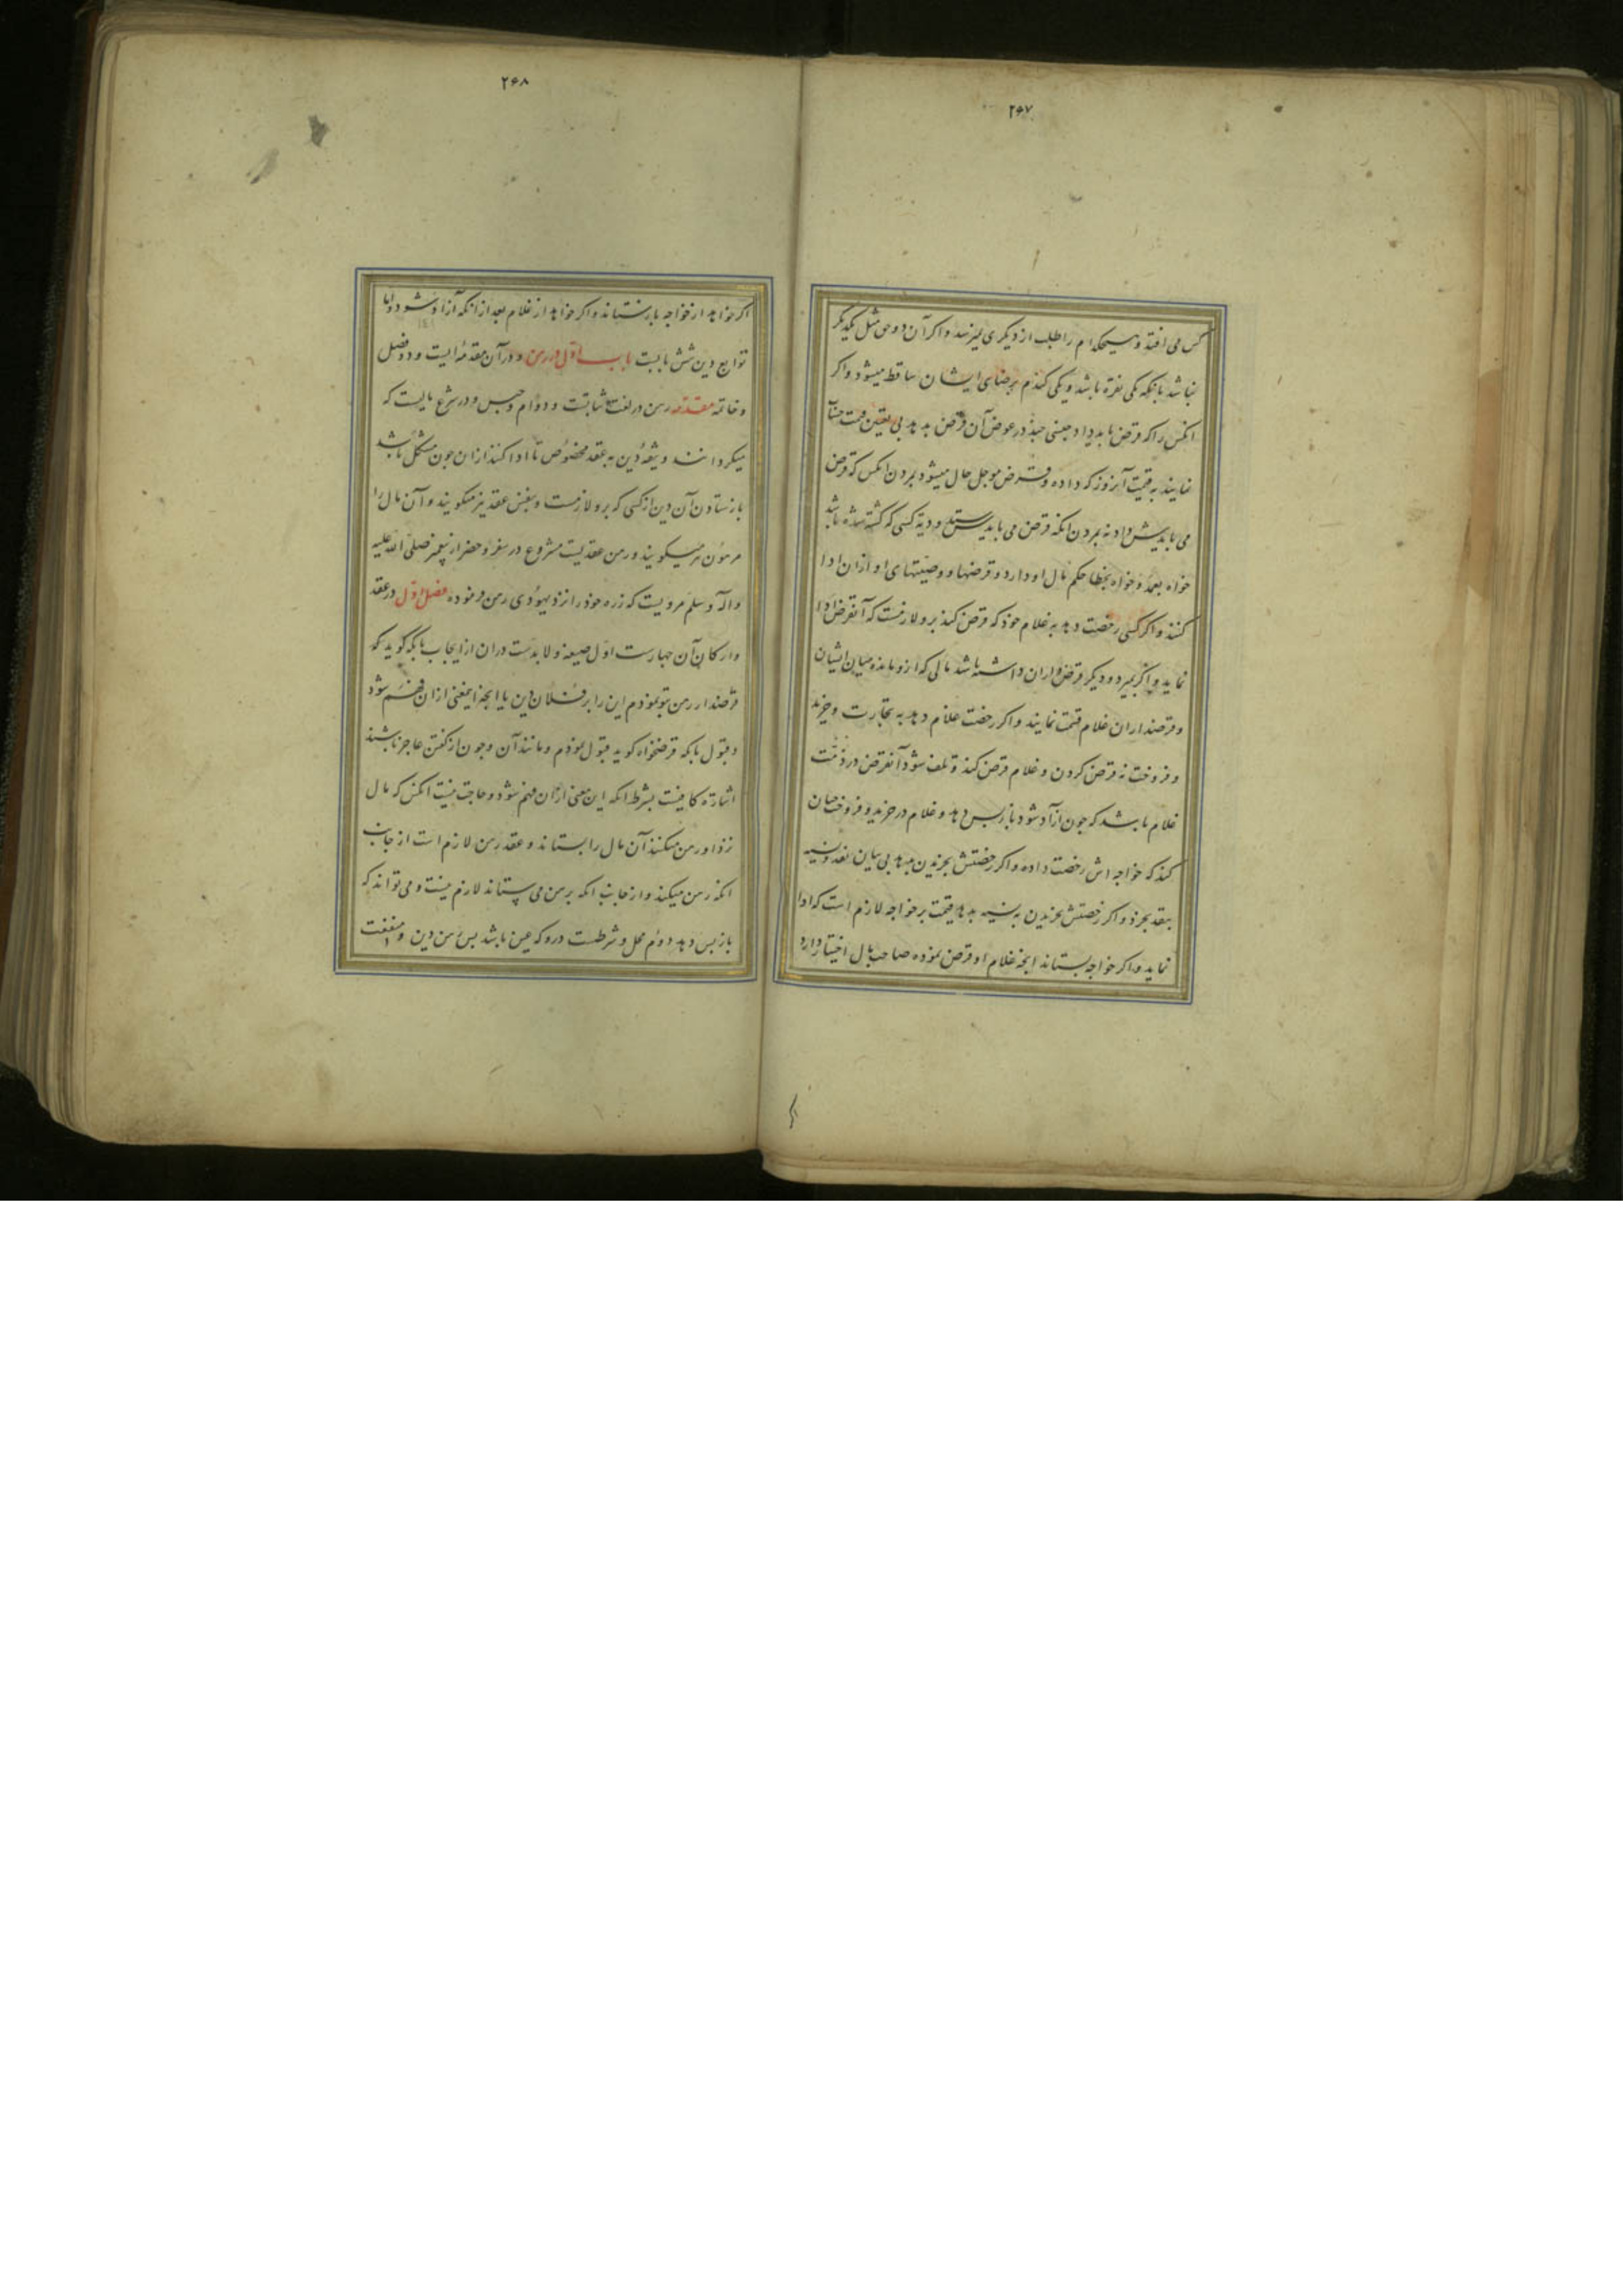 ۲۶۷
کس می افتد و هیچکدام را طلب از دیگری نمیرسد و اکر آن دو حق مثل یکدیکر
نباشد بانکه یکی نقره باشد و یکی کندم برضای ایشان ساقط میشود و اکر
انکس را که قرض باید داد جنسی جند در عوض آن قرض بدهد بی تعیین قیمت حساب
نمایند به قیمت آنروز که داده و قرض موجل حال میشود بمردن انکس که قرض
می بایدش داد نه بمردن انکه قرض می بایدش ستد و دیه کسی که کشته شده باشد
خواه بعمد و خواه بخطا حکم مال او دارد و قرضها و وصیتهای او ازان ادا
کنند و اکر کسی رخصت دهد به غلام خود که قرض کند برو لازمست که آنقرض ادا
نماید و اکر بمیرد و دیکر قرض داران داشته باشد مالی که ازو مانده میان ایشان
و قرضداران غلام قسمت نمایند و اکر رخصت غلام دهد به تجارت و خرید
و فروخت نه قرض کردن و غلام قرض کند و تلف شود آنقرض در ذمت
غلام باشد که جون آزاد شود باز پس دهد و غلام در خرید و فروخت جنان
کند که خواجه اش رخصت داده و اکر رخصتش بخریدن بدهد بی بیان نقد و نسیه
بنقد بخرد و اکر رخصتش بخریدن به نسیه بدهد قیمت برخواجه لازم است که ادا
نماید و اکر خواجه بستاند انجه غلام او قرض نموده صاحب مال اختیار دارد
۲۶۸
اکر خواهد از خواجه بازستاند و اکر خواهد از غلام بعد از انکه آزاد شود و اما
توابع دین شش بابست باب اول در رهن و در آن مقدمه ایست و دو فصل
و خاتمه مقدمه رهن در لغت ثباتست و دوام و حبس و در شرع مالیست که
میکردانند وثیقه دین به عقد مخصوص تا ادا کنند ازان جون مشکل باشد
بازستادن آن دین از کسی که برو لازمست و بنفس عقد نیز میکویند و آن مال را
مرهون نیز میکویند و رهن عقدیست مشروع در سفر و حضر از پیغمبر صلی الله علیه
و اله و سلم مرویست که زره خود را نزد یهودی رهن فرموده فصل اول در عقد
و ارکان آن جهارست اول صیغه و لابدست دران از ایجاب بانکه کوید که
قرضدار رهن تو نمودم این را بر فلان دین یا انجه اینمعنی ازان فهم شود
و قبول بانکه قرضخواه کوید قبول نمودم و مانند آن و جون از کفتن عاجز باشند
اشارت کافیست بشرط انکه این معنی ازان فهم شود و حاجت نیست انکس که مال
نزد او رهن میکنند آن مال را بستاند و عقد رهن لازم است از جانب
انکه رهن میکند و از جانب انکه برهن می ستاند لازم نیست و می تواند که
باز پس دهد دوم محل و شرطست درو که عین باشد پس رهن دین و منفعت